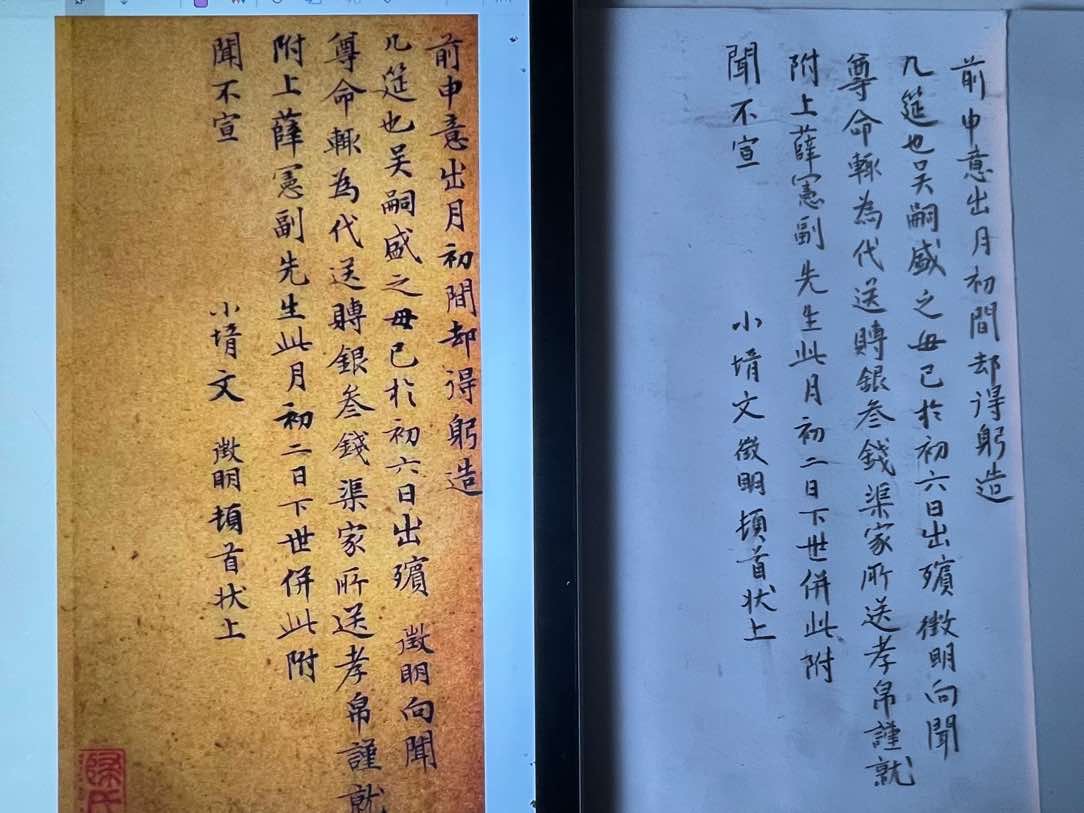 前申意出月初間却得躬造
几筵也吴嗣盛之母已於初六日出殯 徵明向聞
尊命輒為代送賻銀叁錢渠家所送孝帛謹就
附上薛憲副先生此月初二日下世併此附
聞不宣
小壻文 徵明頓首狀上
前申意出月初間却得躬造
几筵也吴嗣盛之母已於初六日出殯徵明向聞
尊命輒為代送賻銀叁錢渠家所送孝帛謹就
附上薛憲副先生此月初二日下世併此附
聞不宣
小壻文徵明頓首狀上